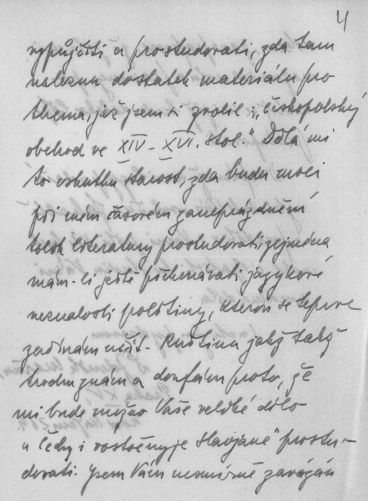 4
vypůjčiti a prostudovati, zda tam
naleznu dostatek materiálu pro
thema, jež jsem si zvolil: „českopolský
obchod ve XIV - XVI. stol." Dělá mi
to vskutku starost, zda budu moci
při mém časovém zaneprázdnění
tolik literatury prostudovati, zejména
mám-li ještě překonávati jazykové
neznalosti polštiny, kterou se teprve
začínám učit. Ruštinu jakž takž
trochu znám a doufám proto, že
mi bude možno Vaše veliké dílo
„Čechy i vostočnyje slavjane" prostu-
dovati. Jsem Vám nesmírně zavázán